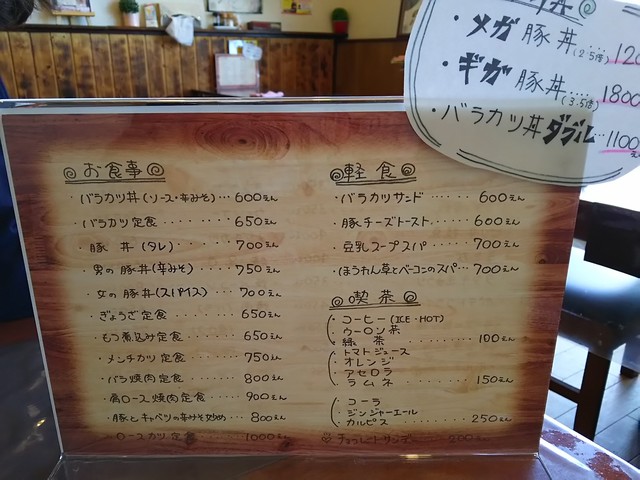 ・メガ豚丼(2.5倍) 120
・ギガ豚丼‥(3.5倍) 1800
・バラカツ丼ダブル…1100えん
お食事
・バラカツ丼(ソース・辛みそ)…600えん
・バラカツ定食‥‥‥650えん
・豚丼(タレ)‥‥‥700えん
・男の豚丼(辛みそ)‥‥750えん
・女の豚丼(スパイス)‥‥700えん
・ぎょうざ定食‥‥‥650えん
・もつ煮込み定食‥‥‥650えん
・メンチカツ定食‥‥‥750えん
・バラ焼肉定食‥‥‥800えん
・肩ロース焼肉定食‥‥900えん
・豚とキャベツの辛みそ炒め‥800えん
・ロースカツ定食‥‥‥1000えん
軽食
・バラカツサンド‥‥‥600えん
・豚チーズトースト‥‥‥600えん
・豆乳スープスパ‥‥‥700えん
・ほうれん草とベーコンのスパ…700えん
喫茶
・コーヒー(ICE・HOT)
・ウーロン茶
・緑茶‥‥‥100えん
・トマトジュース
・オレンジ
・アセロラ
・ラムネ‥‥‥150えん
・コーラ
・ジンジャーエール
・カルピス‥‥‥250えん
チョコレートサンデー‥‥200えん